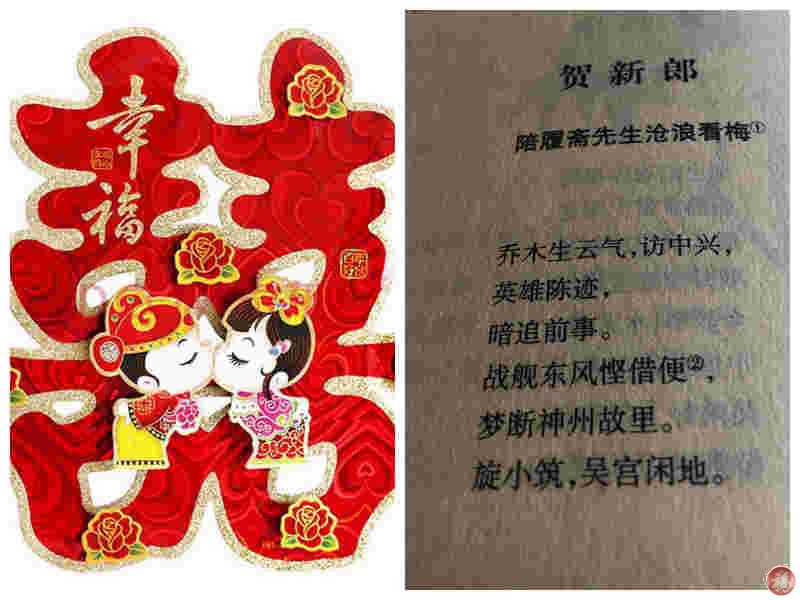 幸福
贺新郎
陪履斋先生沧浪看梅①
乔木生云气，访中兴，
英雄陈迹，
暗追前事。
战舰东风悭借便②，
梦断神州故里。
旋小筑，吴宫闲地。
福